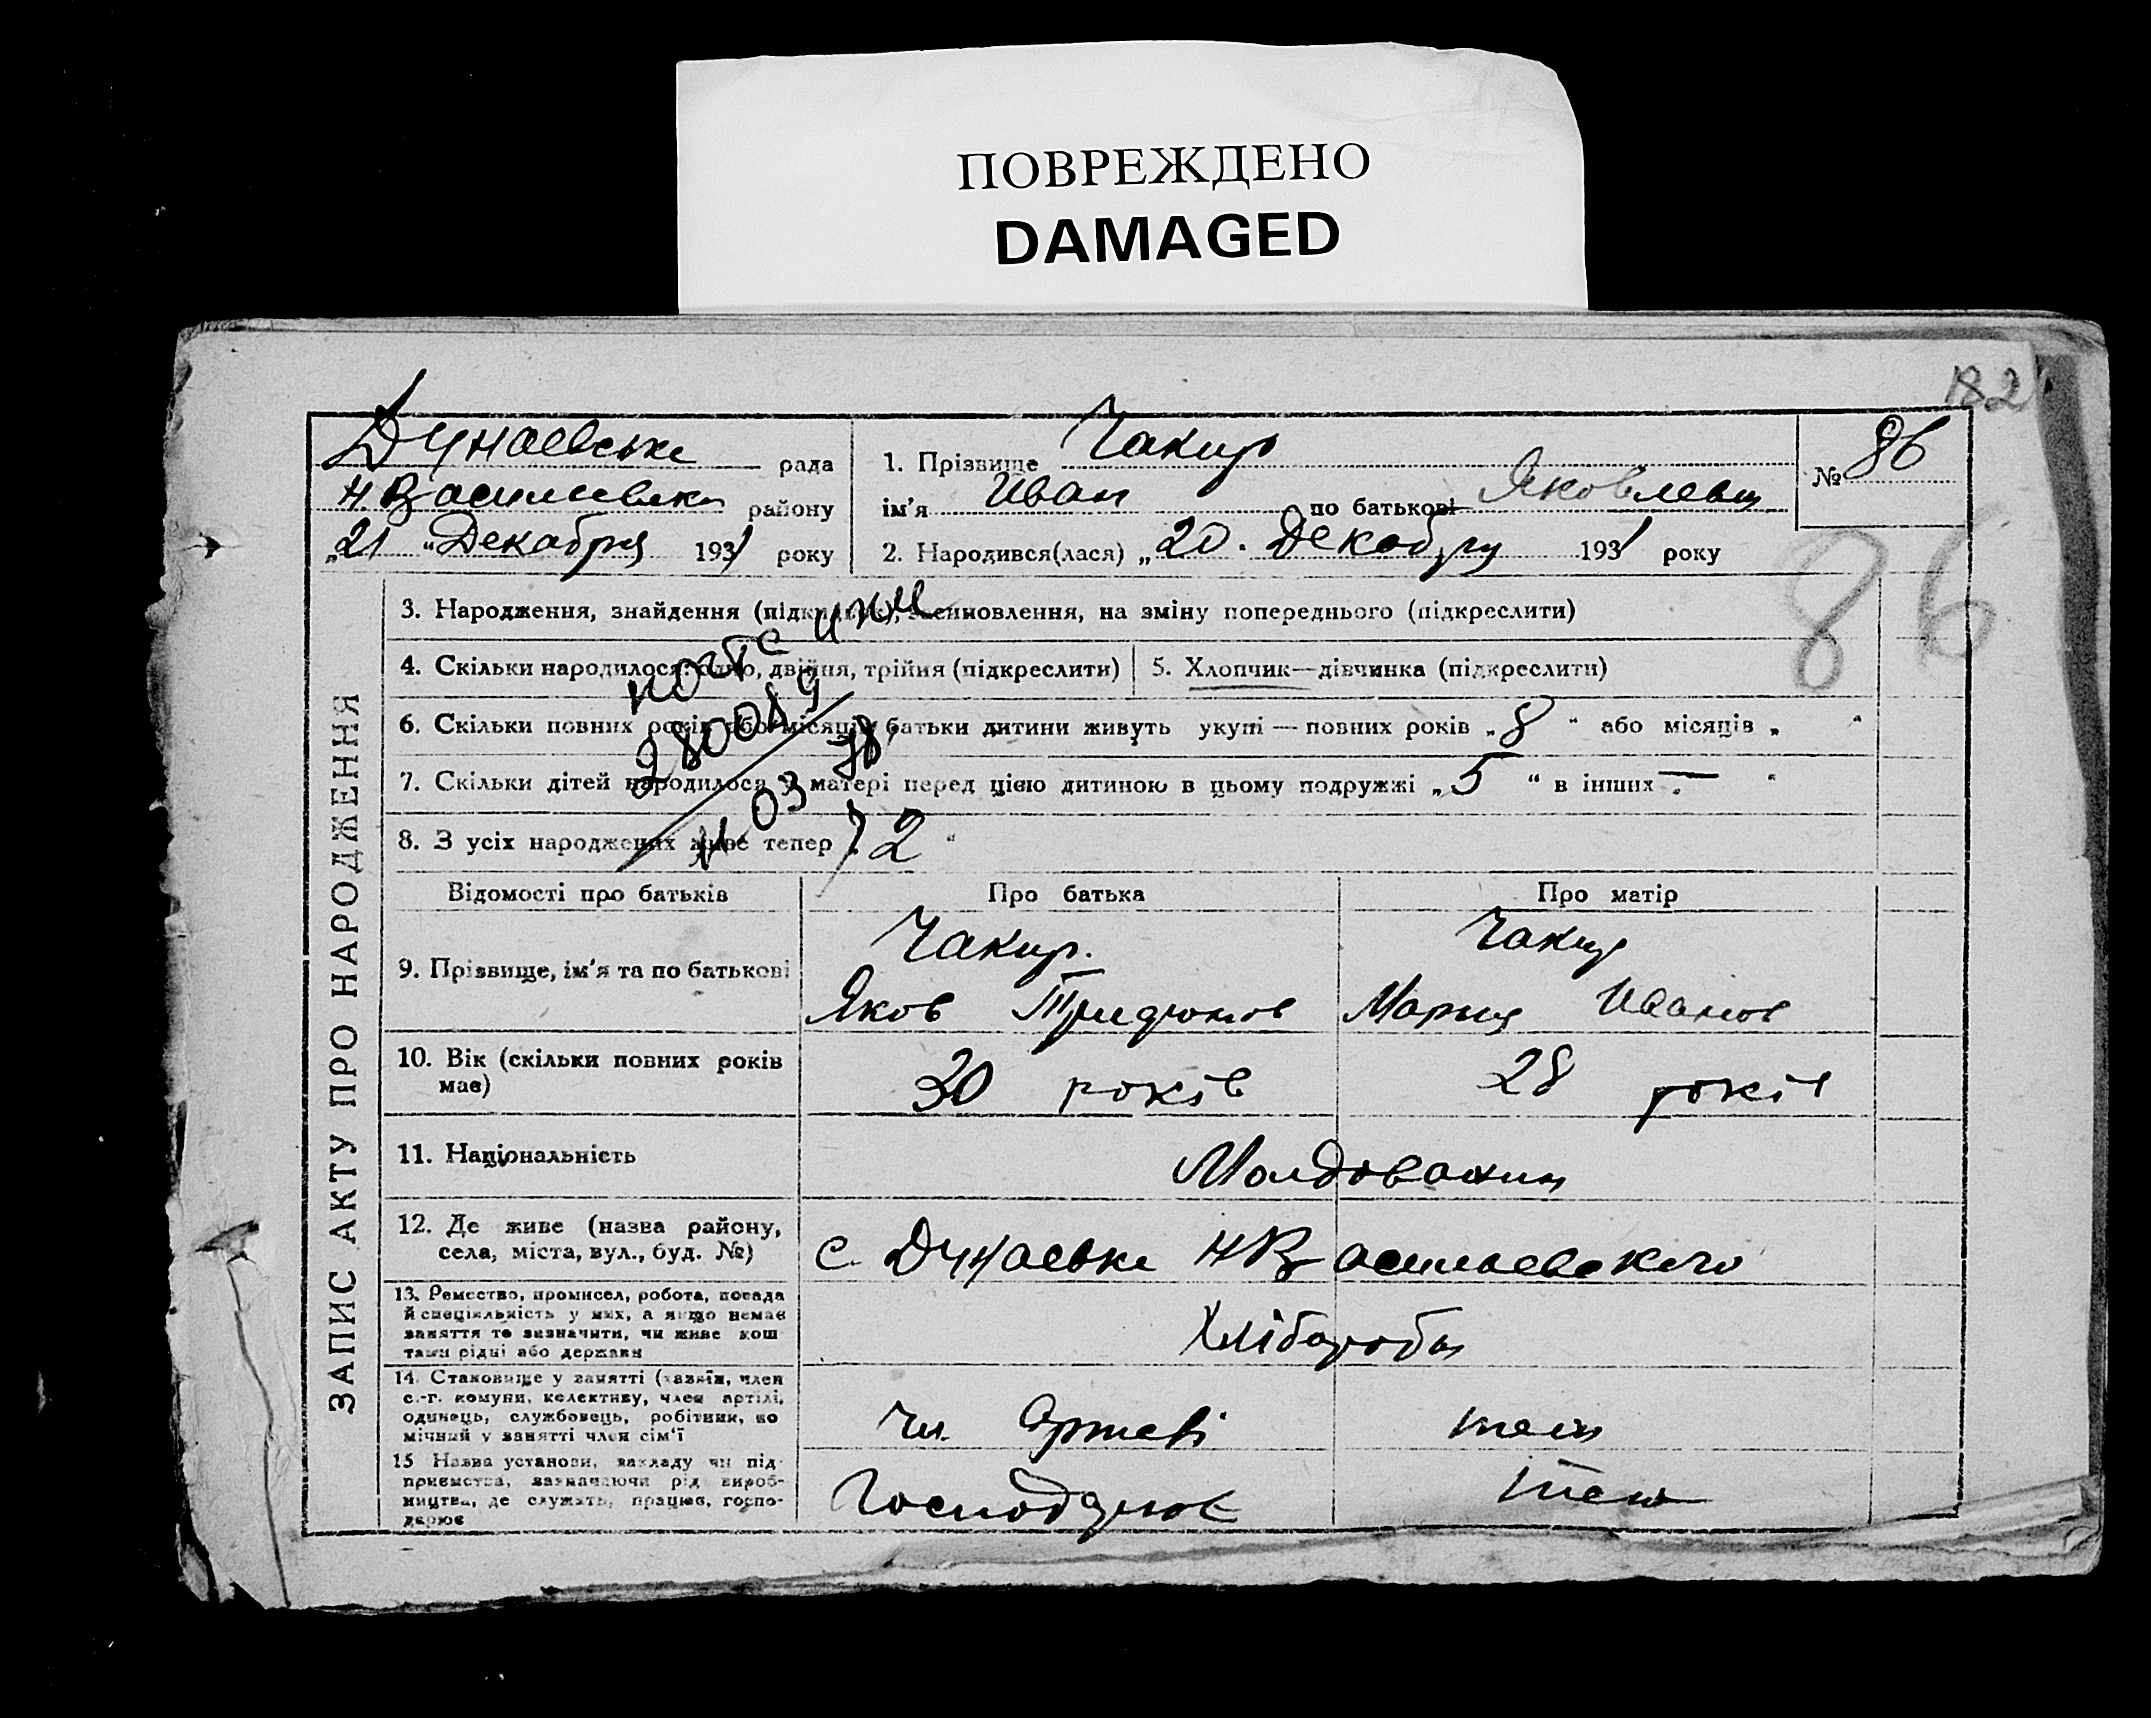 ПОВРЕЖДЕНО
DAMAGED
182
Дунаевське рада
Н.Васильевки району
„21 “ Декабря 1931 року
1. Прізвище Чакир
ім'я Иван по батькові Яковлевич
2. Народився(лася) „20. Декабря 1931 року
№ 86
86
ЗАПИС АКТУ ПРО НАРОДЖЕННЯ
3. Народження, знайдення (підкидьок), всиновлення, на зміну попереднього (підкреслити)
4. Скільки народилося: одно, двійня, трійня (підкреслити)
5. Хлопчик—дівчинка (підкреслити)
6. Скільки повних років або місяців батьки дитини живуть укупі — повних років „8 “ або місяців „ “
7. Скільки дітей народилося у матері перед цією дитиною в цьому подружжі „5 “ в інших „— “
8. З усіх народжених живе тепер „2 “
280089
03
Відомості про батьків
Про батька
Про матір
9. Прізвище, ім'я та по батькові
Чакир.
Яков
Чакир
Мария Иванов
10. Вік (скільки повних років має)
30 років
28 років
11. Національність
Молдовании
12. Де живе (назва району, села, міста, вул., буд. №)
с. Дунаевке Н Васильевского
13. Ремество, промисел, робота, посада й спеціяльність у них, а якщо немає заняття то зазначити, чи живе коштами рідні або держави
Хлібороби
14. Становище у занятті (хазяїн, член с.-г. комуни, колективу, член артілі, одинець, службовець, робітник, помічний у занятті член сім'ї
Чл. Артеві
теж
15 Назва установи, закладу чи підприємства, зазначаючи рід виробництва, де служить, працює, господарює
Господарює
теж